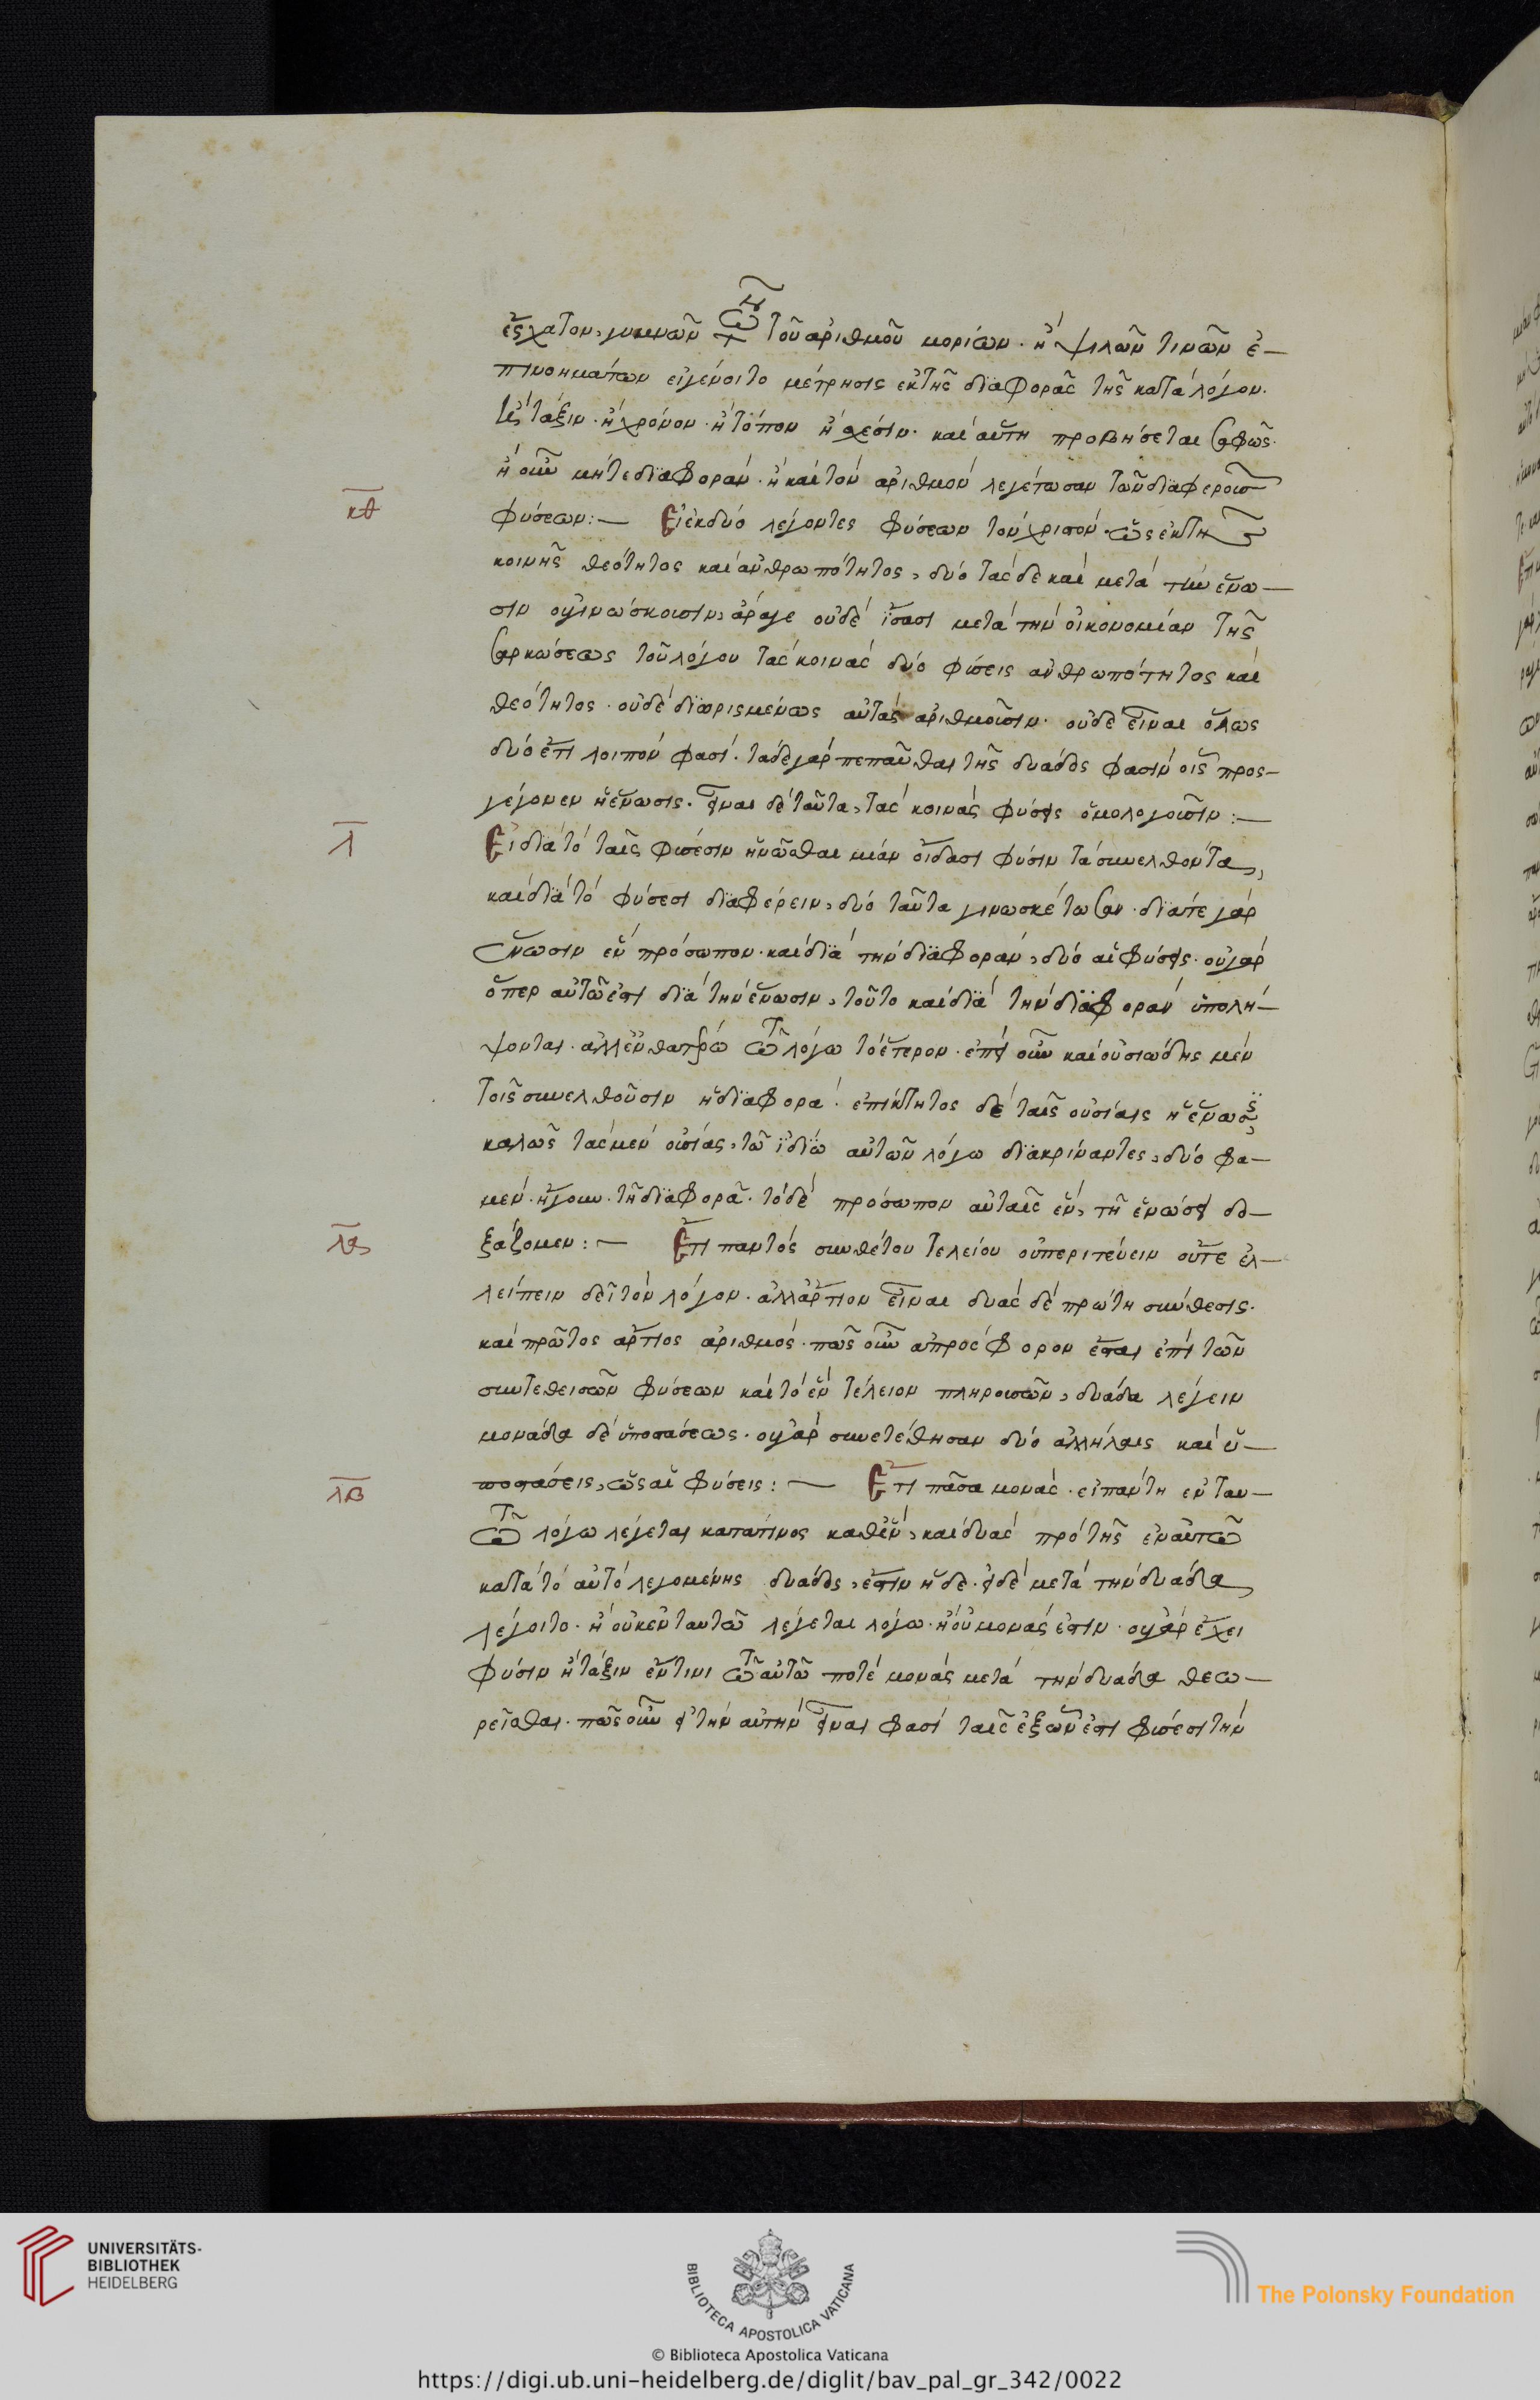 ἔσχατον, γυμνῶν τῶν τοῦ ἀριθμοῦ μορίων· ἢ ψιλῶν τινῶν ἐ-
πινοημάτων εἰ γένοιτο μέτρησις ἐκ τῆς διαφορᾶς τῆς κατὰ λόγον.
τάξιν· ἢ χρόνον· ἢ τόπον ἢ σχέσιν· καὶ αὕτη προβήσεται σαφῶς·
ἢ οὖν μήτε διαφοράν· ἢ καὶ τὸν ἀριθμὸν λεγέτωσαν τῶν διαφερουσῶν
κθ φύσεων:— Εἰ ἐκ δύο λέγοντες φύσεων τὸν χριστὸν ὡς ἐκ τῆς
κοινῆς θεότητος καὶ ἀνθρωπότητος, δύο τάσδε καὶ μετὰ τὴν ἕνω-
σιν οὐ γινώσκουσιν, ἆρά γε οὐδὲ ἴσασι μετὰ τὴν οἰκονομίαν τῆς
σαρκώσεως τοῦ λόγου τὰς κοινὰς δύο φύσεις ἀνθρωπότητος καὶ
θεότητος· οὐδὲ διωρισμένως αὐτὰς ἀριθμοῦσιν· οὐδὲ εἶναι ὅλως
δύο ἔτι λοιπὸν φασί· τάδε γὰρ πεπαῦσθαι τῆς δυάδος φασὶν οἷς προσ-
γέγονεν ἡ ἕνωσις· εἶναι δὲ ταῦτα, τὰς κοινὰς φύσεις ὁμολογοῦσιν:—
λ Εἰ διὰ τὸ ταῖς φύσεσιν ἡνῶσθαι μίαν οἴδασι φύσιν τὰ συνελθόντα,
καὶ διὰ τὸ φύσεσι διαφέρειν, δύο ταῦτα γινωσκέτωσαν· διά τε γὰρ
ἕνωσιν ἓν πρόσωπον· καὶ διὰ τὴν διαφοράν, δύο αἱ φύσεις· οὐ γὰρ
ὅπερ αὐτῶ ἐστι διὰ τὴν ἕνωσιν, τοῦτο καὶ διὰ τὴν διαφορὰν ὑπολή-
ψονται· ἀλλ' ἐν θατέρω τῶ λόγω τὸ ἕτερον· ἐπεὶ οὖν καὶ οὐσιώδης μὲν
τοῖς συνελθοῦσιν ἡ διαφορά· ἐπίκτητος δὲ ταῖς οὐσίαις ἡ ἕνωσις,
καλῶς τὰς μὲν οὐσίας, τῶ ἰδίω αὐτῶν λόγω διακρίναντες, δύο φα-
μεν· ἤγουν· τῆ διαφορᾶ· τὸ δὲ πρόσωπον αὐταῖς ἓν, τῆ ἑνώσει δο-
λα ξάζομεν:— Ἔτι παντὸς συνθέτου τελείου οὐ περιττεύειν οὔτε ἐλ-
λείπειν δεῖ τὸν λόγον· ἀλλ' ἄρτιον εἶναι δυὰς δὲ πρώτη σύνθεσις·
καὶ πρῶτος ἄρτιος ἀριθμός· πῶς οὖν ἀπρόσφορον ἔσται ἐπὶ τῶν
συντεθεισῶν φύσεων καὶ τὸ ἓν τέλειον πληρουσῶν, δυάδα λέγειν
μονάδα δὲ ὑποστάσεως· οὐ γὰρ συνετέθησαν δύο ἀλλήλαις καὶ ὑ-
λβ ποστάσεις, ὡς αἱ φύσεις:— Ἔτι πᾶσα μονὰς· εἰ πάντη ἐν ταυ-
τῶ λόγω λέγεται κατά τινος καθ' ἕν, καὶ δυὰς πρὸ τῆς ἐν αὐτῶ
κατὰ τὸ αὐτὸ λεγομένης δυάδος, ἐστιν ἥδε· εἰ δὲ μετὰ τὴν δυάδα
λέγοιτο· ἢ οὐκ ἐν ταυτῶ λέγεται λόγω· ἢ οὐ μονάς ἐστιν· οὐ γὰρ ἔχει
φύσιν ἢ τάξιν ἔν τινι τῶ αὐτῶ ποτὲ μονὰς μετὰ τὴν δυάδα θεω-
ρεῖσθαι· πῶς οὖν εἰ τὴν αὐτὴν εἶναι φασὶ ταῖς ἐξ ὧν ἐστι φύσεσι τὴν
UNIVERSITÄTS-
BIBLIOTHEK
HEIDELBERG
BIBLIOTECA APOSTOLICA VATICANA
The Polonsky Foundation
© Biblioteca Apostolica Vaticana
https://digi.ub.uni-heidelberg.de/diglit/bav_pal_gr_342/0022